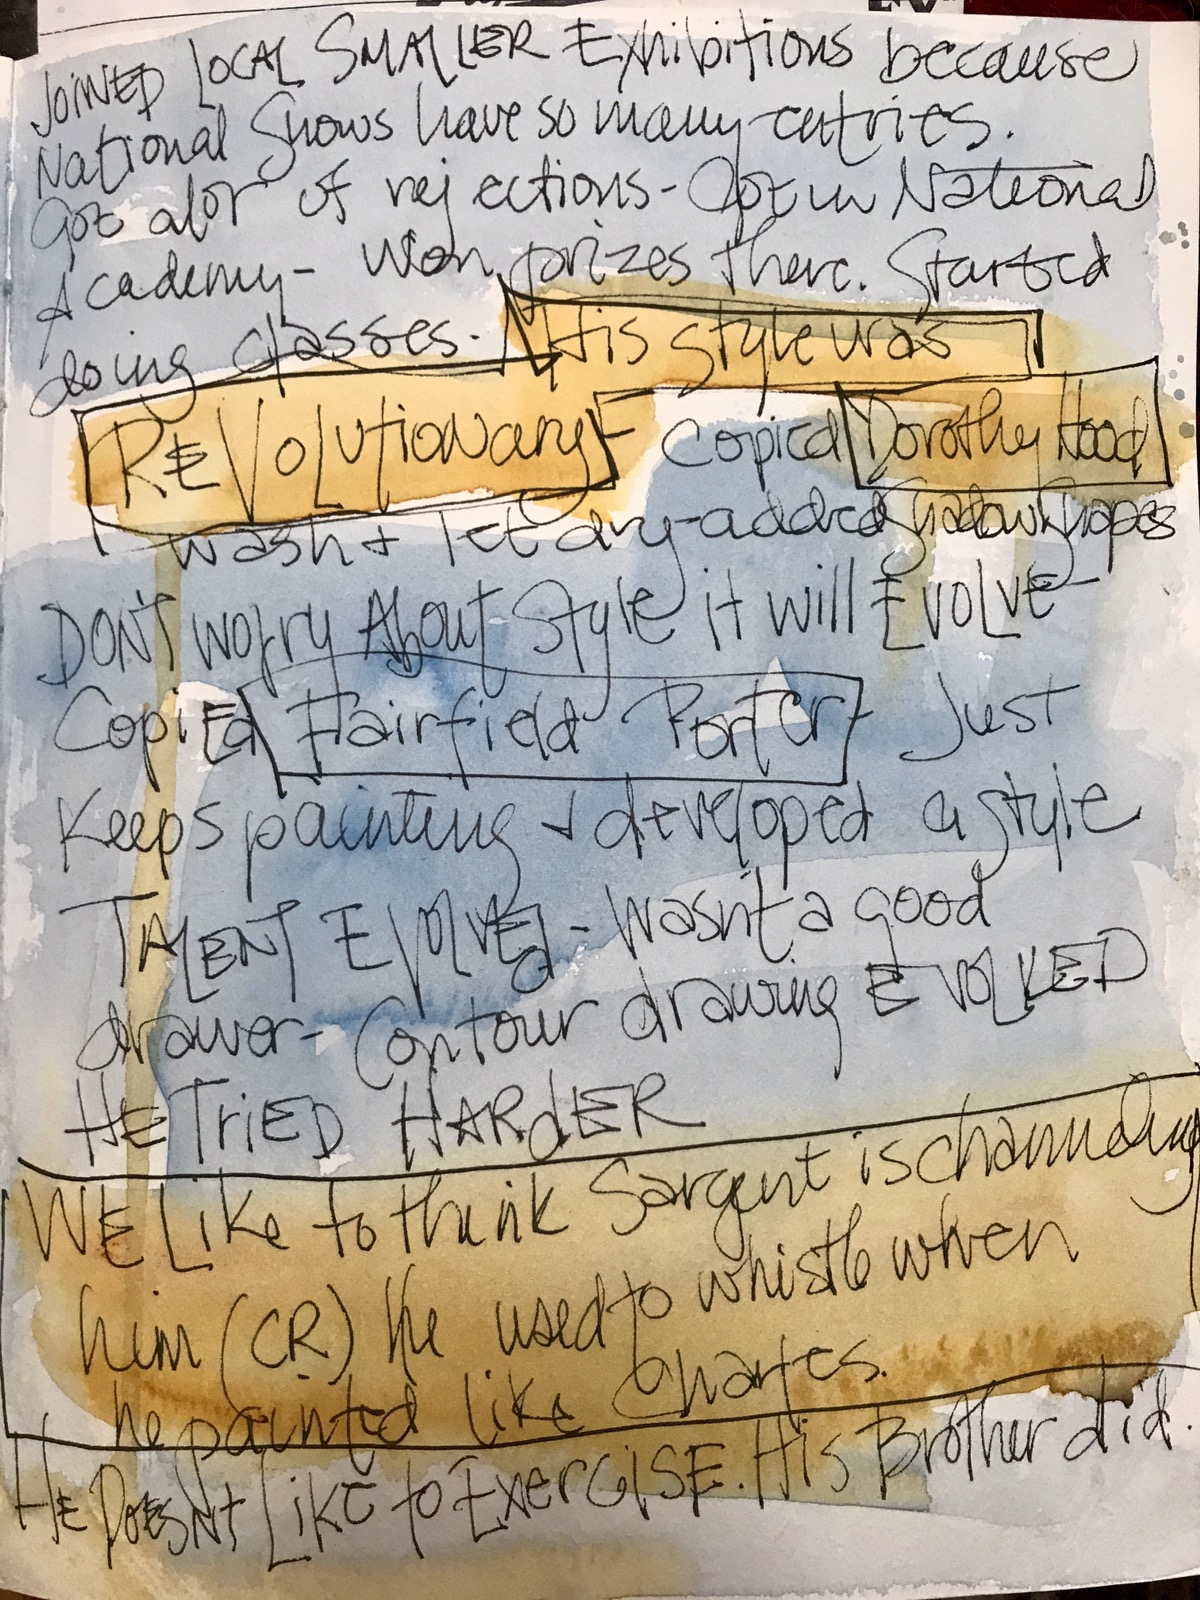 JOINED LOCAL SMALLER Exhibitions because
National Shows have so many entries.
Got alot of rejections - Got in National
Academy - Won prizes there. Started
doing classes. His style was
REVOLUtionary - copied Dorothy Hood
wash + let dry - added shadow shapes
DON'T worry About Style it will EVOLVE -
Copied Fairfield Porter - Just
Keeps painting + developed a style
TALENT EVOLVEd - Wasn't a good
drawer - Contour drawing EVOLVED
HE TriED HARdER
WE Like to think Sargent is channeling
him (CR) He used to whistle when
he painted like Charles.
HE DoEsN't Like to ExerciSE. His Brother did.